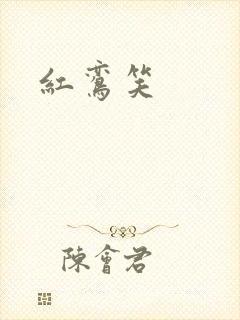 紅鸞笑
陳會君